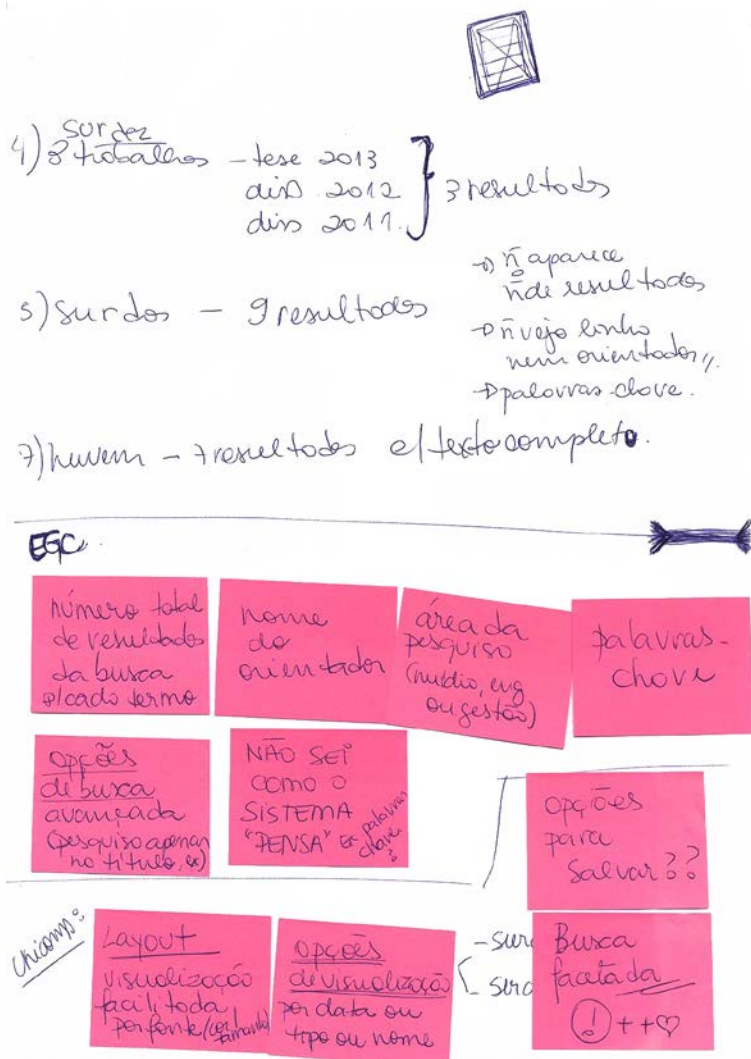 surdez
4) 8 trabalhos - tese 2013
diss 2012
diss 2011.
3 resultados
→ ñ aparece
nº de resultados
5) surdos - 9 resultados
→ ñ vejo linha
nem orientador //.
→ palavras-chave.
7) nuvem - 7 resultados c/ texto completo.
EGC.
número total
de resultados
da busca
p/ cada termo
nome
do
orientador
área da
pesquisa
(mídia, eng
ou gestão)
palavras-
chave
opções
de busca
avançada
(pesquisa apenas
no título, ex)
NÃO SEI
COMO O
SISTEMA
"PENSA" Ex palavras
chave?
opções
para
salvar??
Unicamp:
LAYOUT
visualização
facilitada
por fonte (cor/
tamanho)
opções
de visualização
por data ou
tipo ou nome
- surd
Busca
facetada
(!) + + ♡